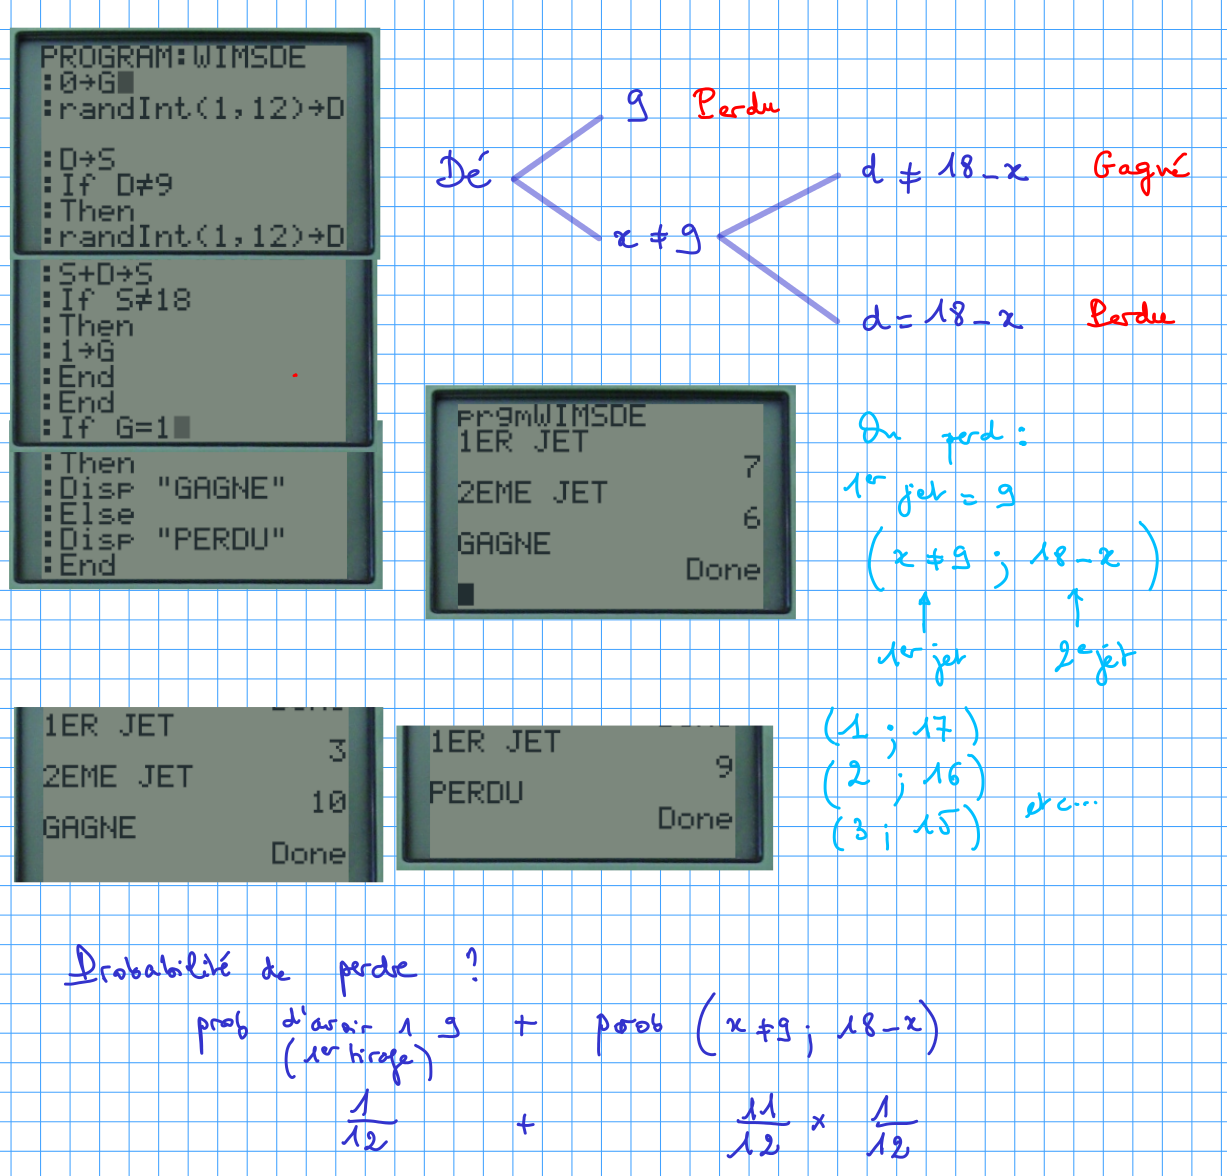 PROGRAM:WIMSDE
:0→G
:randInt(1,12)→D
:D→S
:If D≠9
:Then
:randInt(1,12)→D
:S+D→S
:If S≠18
:Then
:1→G
:End
:End
:If G=1
:Then
:Disp "GAGNE"
:Else
:Disp "PERDU"
:End
Dé
9 Perdu
x ≠ 9
d ≠ 18-x Gagné
d = 18-x Perdu
prgmWIMSDE
1ER JET
7
2EME JET
6
GAGNE
Done
On perd :
1er jet = 9
(x ≠ 9 ; 18-x)
1er jet 2e jet
1ER JET
3
2EME JET
10
GAGNE
Done
1ER JET
9
PERDU
Done
(1 ; 17)
(2 ; 16)
(3 ; 15) etc...
Probabilité de perdre ?
prob d'avoir 1 9 + prob (x ≠ 9 ; 18-x)
(1er tirage)
1/12 + 11/12 × 1/12